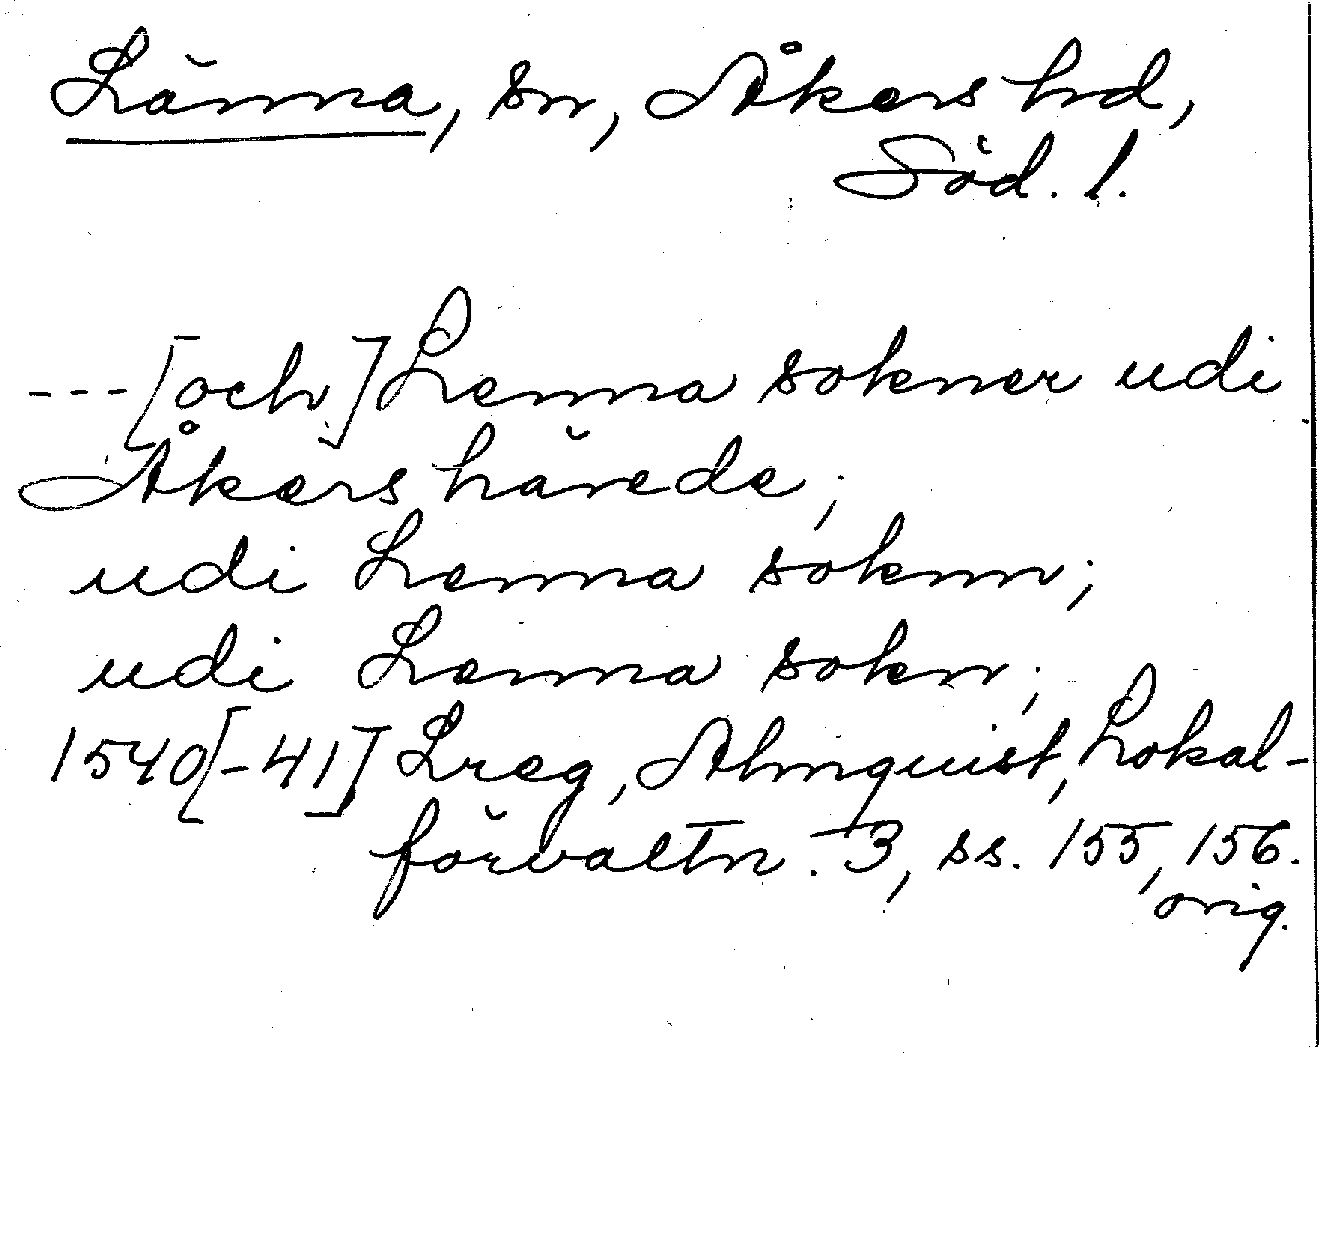 Länna, sn, Åkers hd,
Söd. l.
---[och] Lenna sokner udi
Åkers härede;
udi Lenna soknn;
udi Lenna sokn;
1540[-41] Lreg, Almquist, Lokal-
förvaltn. 3, ss. 155, 156.
orig.